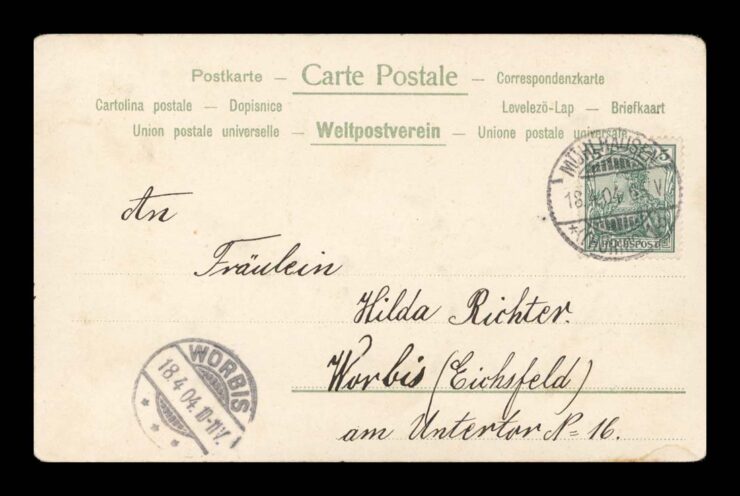 Postkarte — Carte Postale — Correspondenzkarte
Cartolina postale — Dopisnice Levelezö-Lap — Briefkaart
Union postale universelle — Weltpostverein — Unione postale universale
MÜHLHAUSEN
18.4.04
5
REICHSPOST
An
Fräulein
Hilda Richter.
Worbis (Eichsfeld)
am Untertor № 16.
WORBIS
18.4.04.10-11V.